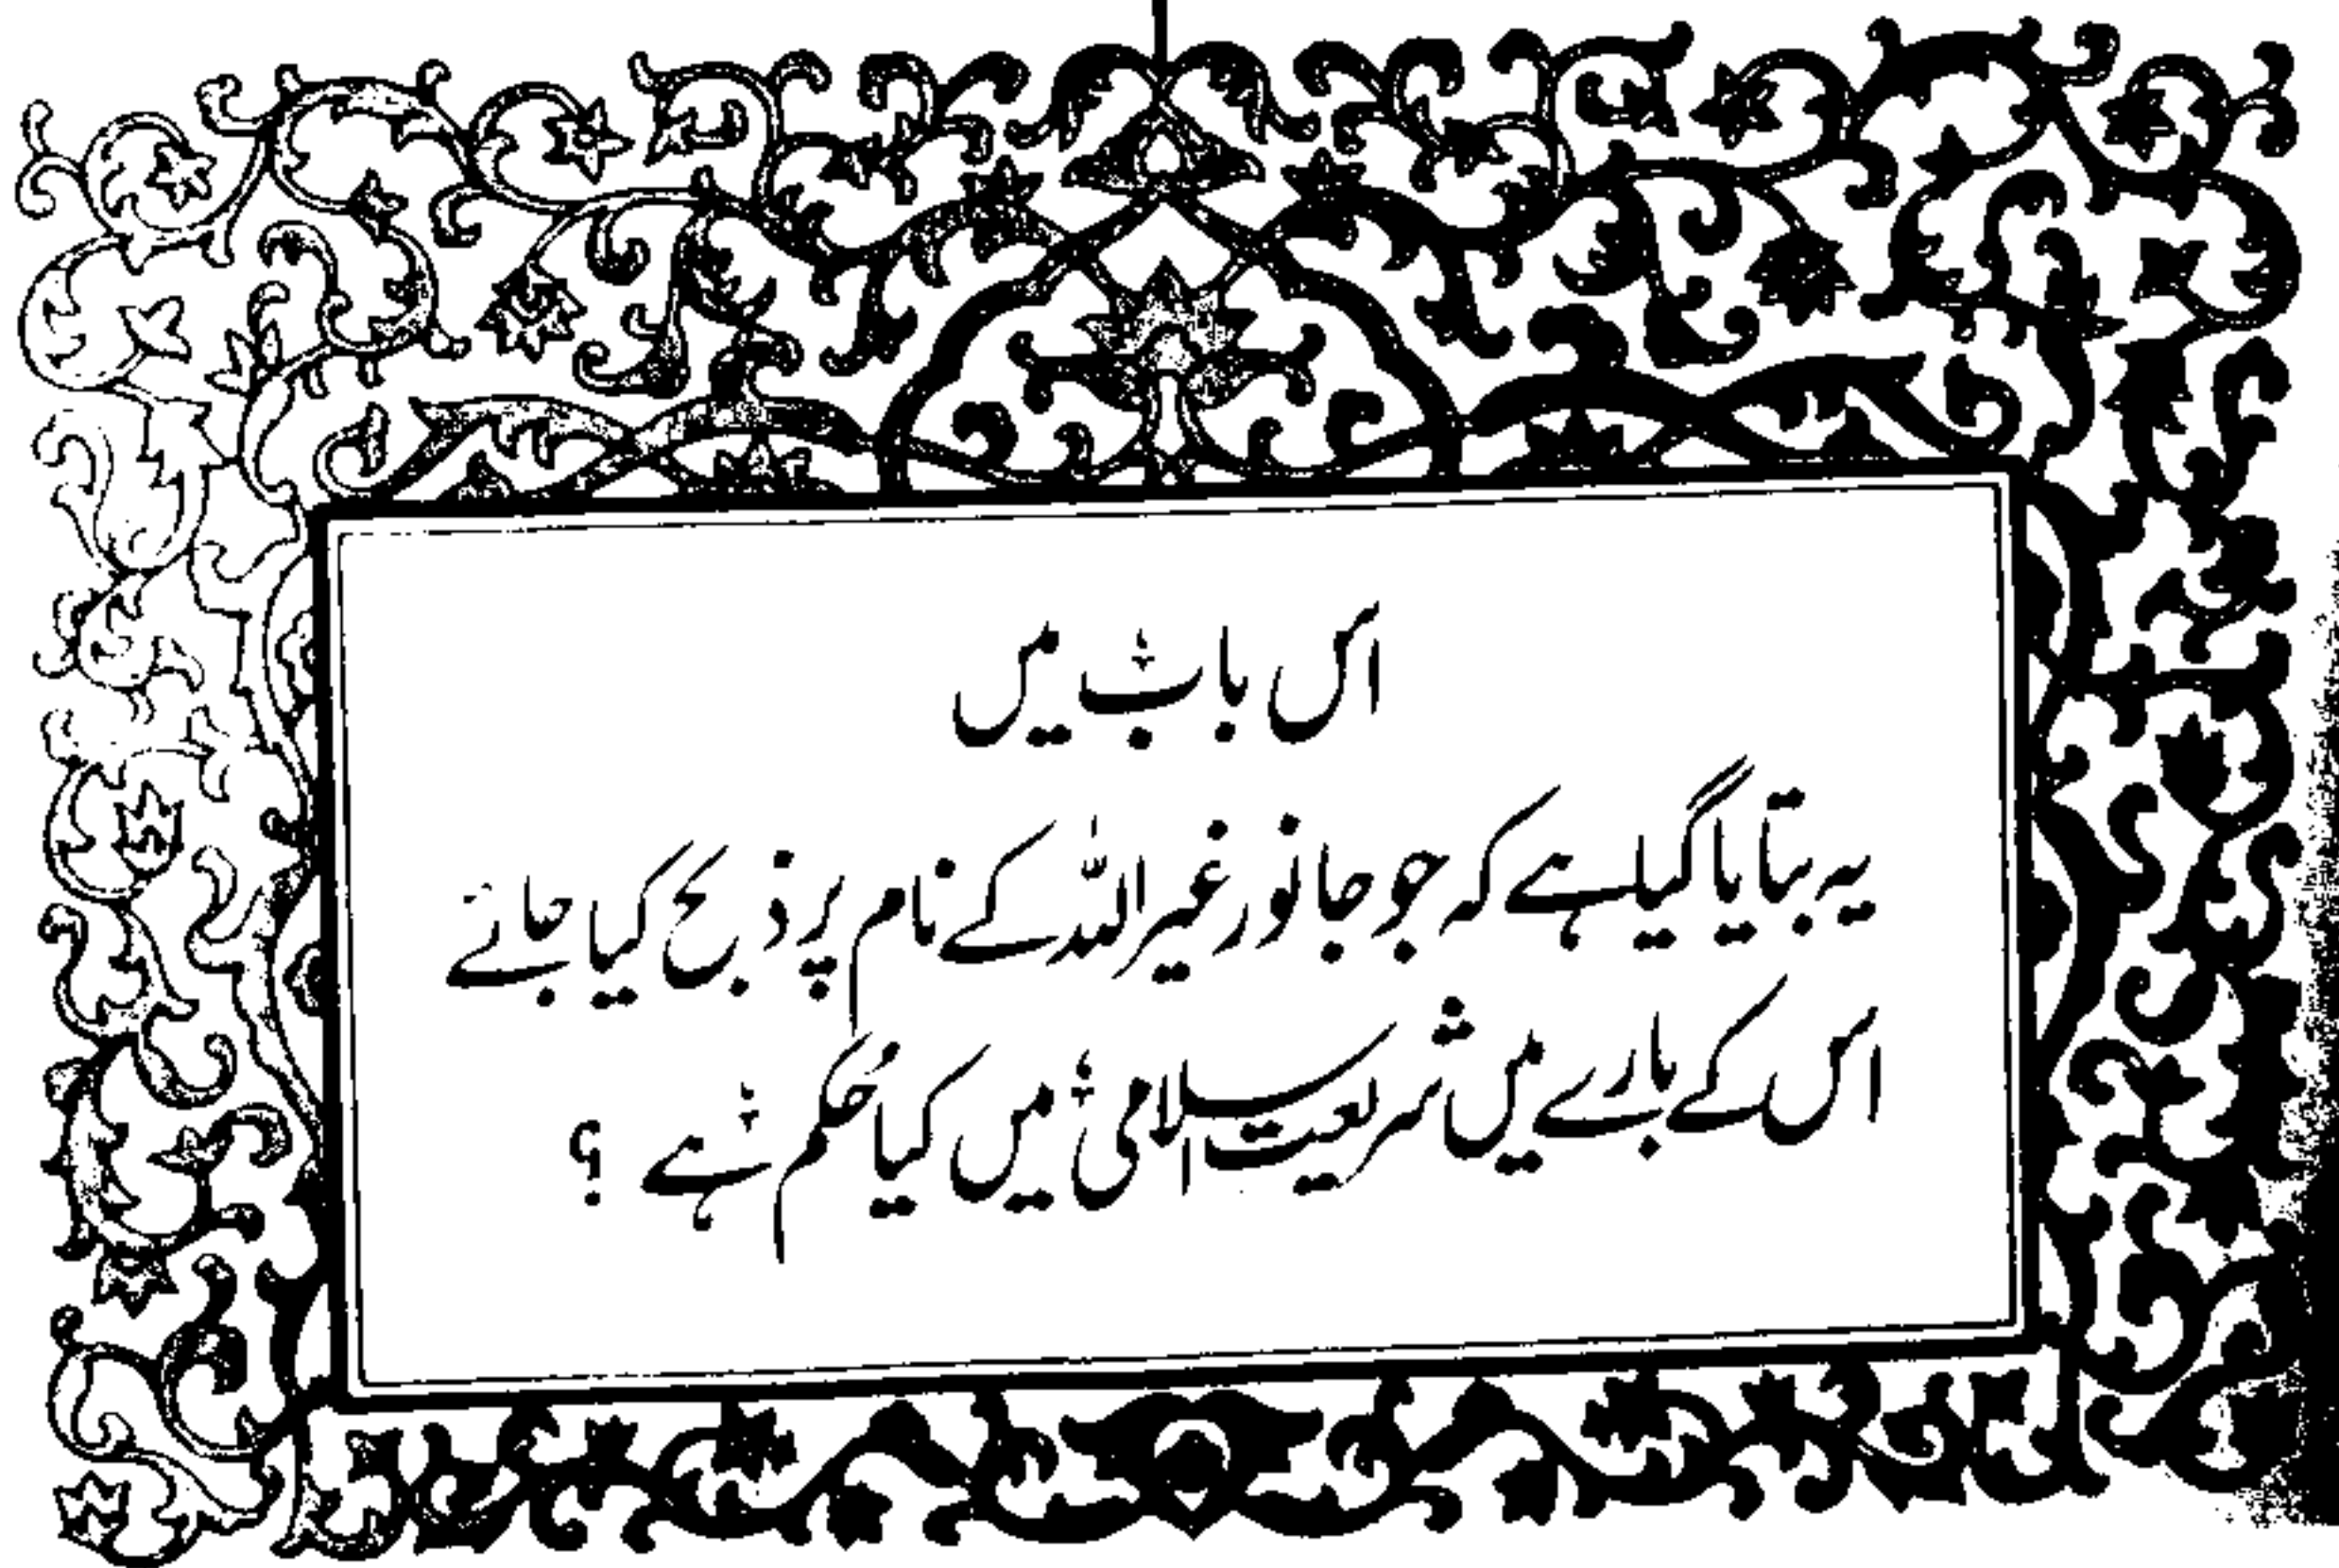 اس باب میں
یہ بتایا گیا ہے کہ جو جانور غیر اللہ کے نام پر ذبح کیا جائے
اس کے بارے میں شریعت اسلامی میں کیا حُکم ہے ؟